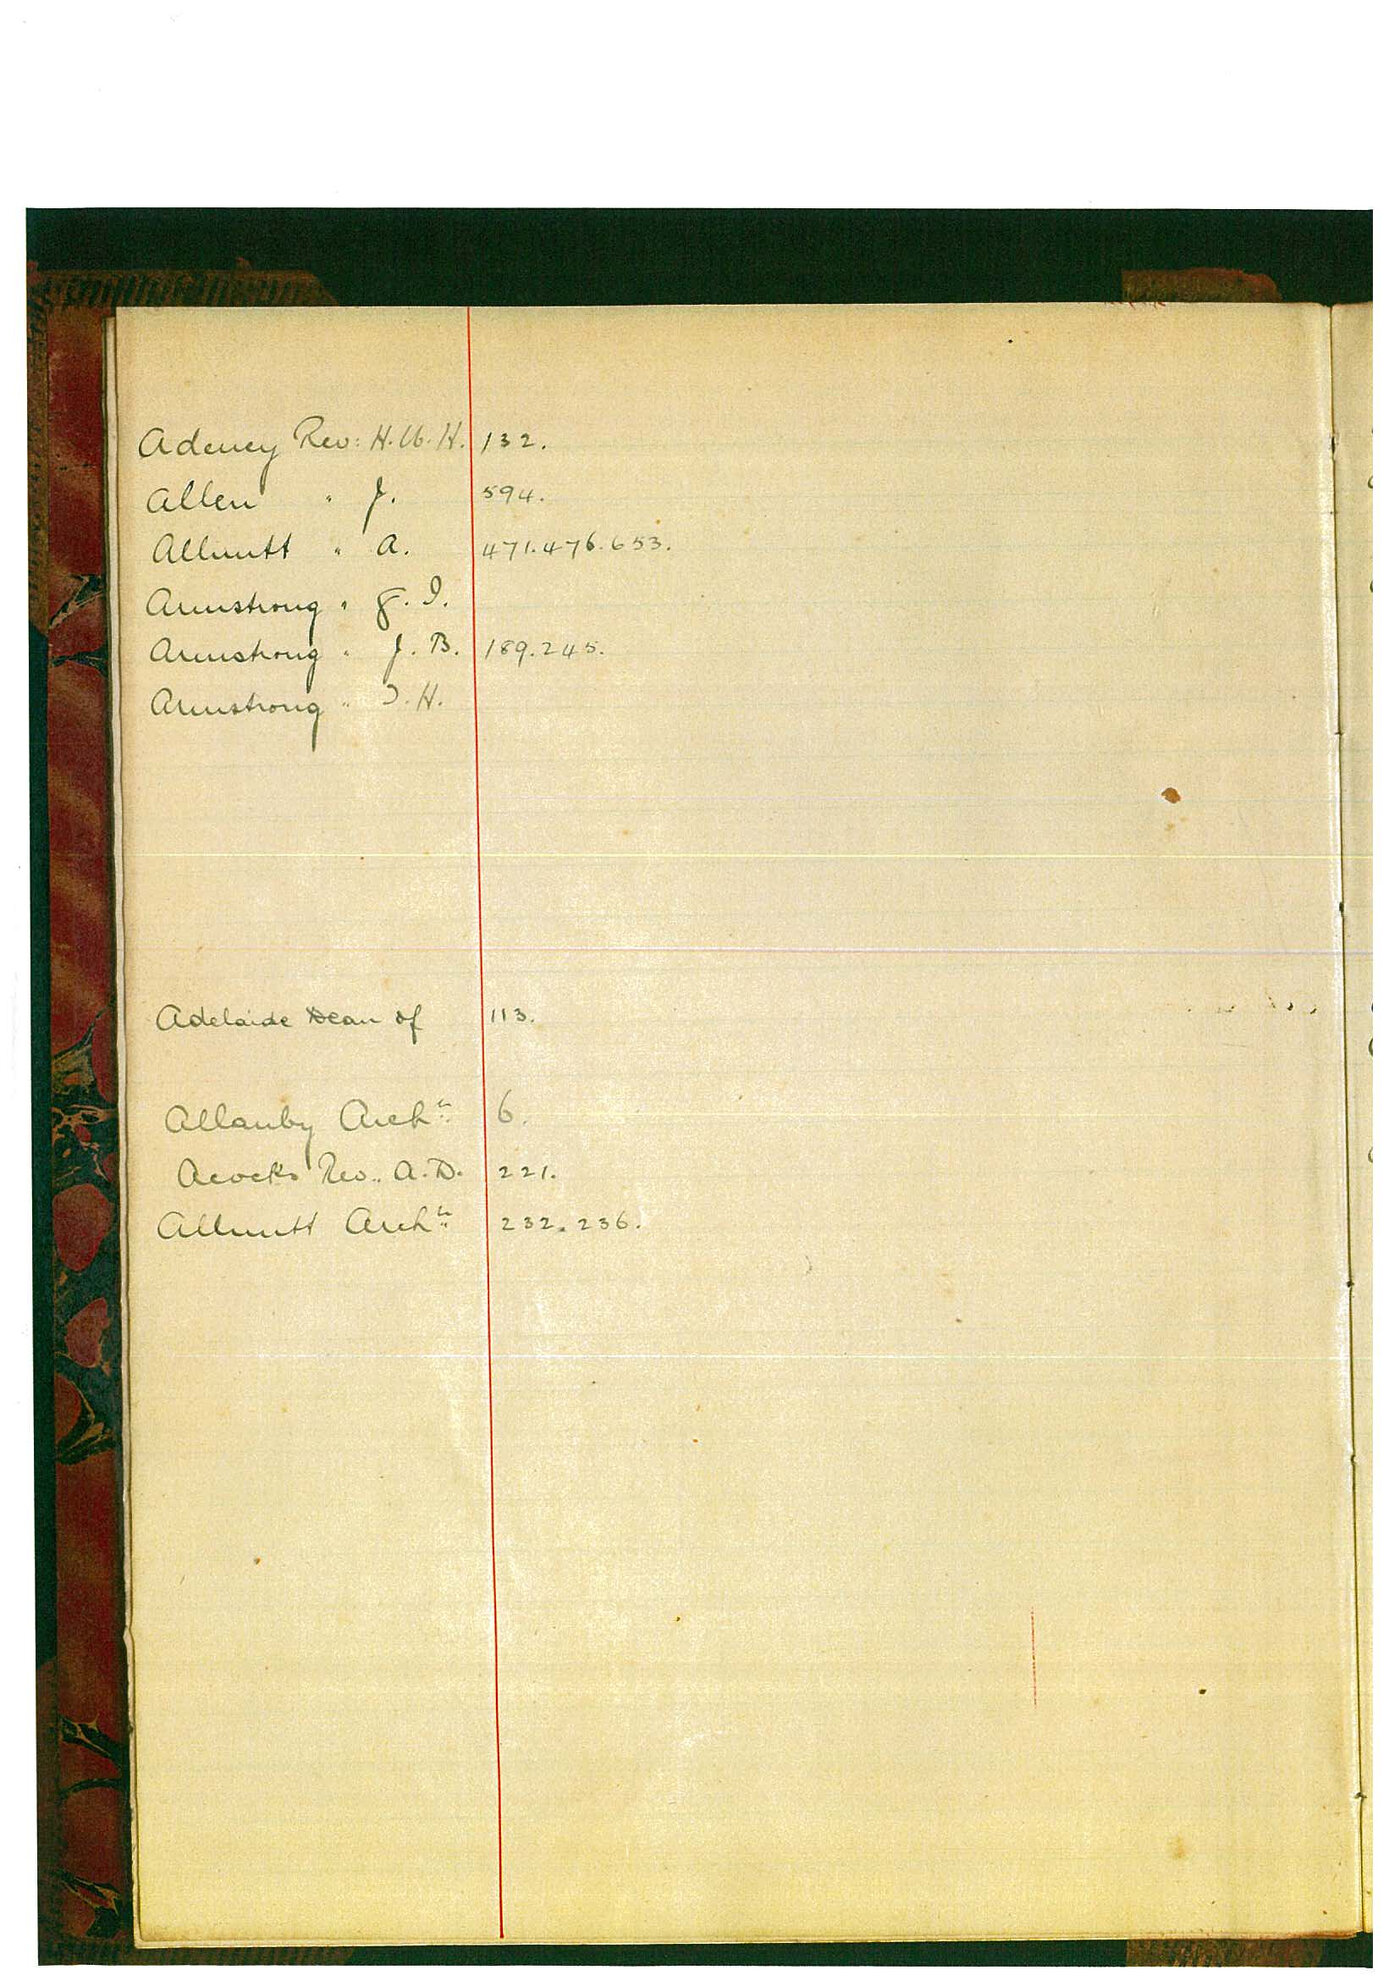 Adeney Rev: H. W. H. 132.
Allen " J. 594.
Allnutt " A. 471. 476. 653.
Armstrong " J. I.
Armstrong " J. B. 189. 245.
Armstrong " I. H.
Adelaide Dean of 113.
Allanby Archn 6.
Acocks Rev. A. D. 221.
Allnutt Archn 232. 236.